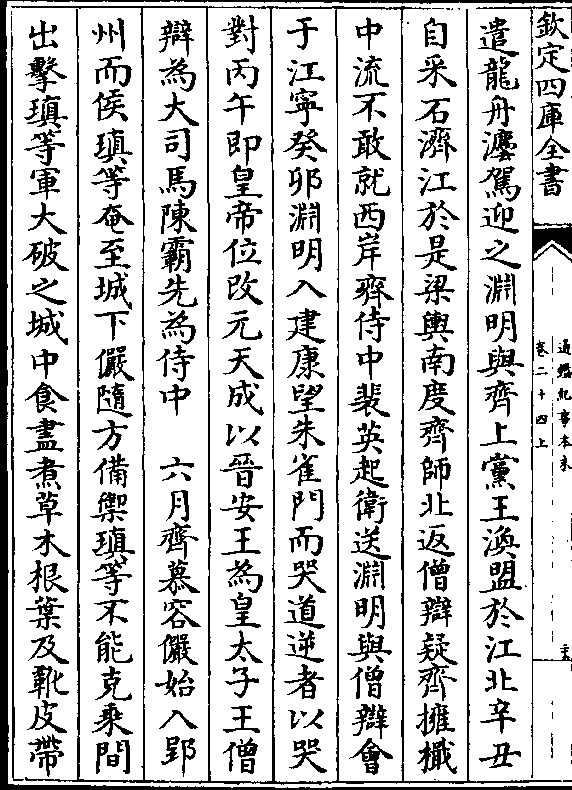 欽定四庫全書
通鑑紀事本末
卷二十四上
遣龍舟灋駕迎之淵明與齊上黨王渙盟於江北辛丑
自采石濟江於是梁輿南度齊師北返僧辯疑齊擁檝
中流不敢就西岸齊侍中裴英起衛送淵明與僧辯會
于江寧癸卯淵明入建康望朱雀門而哭道逆者以哭
對丙午即皇帝位改元天成以晉安王為皇太子王僧
辯為大司馬陳霸先為侍中　六月齊慕容儼始入郢
州而侯瑱等奄至城下儼隨方備禦瑱等不能克乘間
出擊瑱等軍大破之城中食盡煮草木根葉及靴皮帶